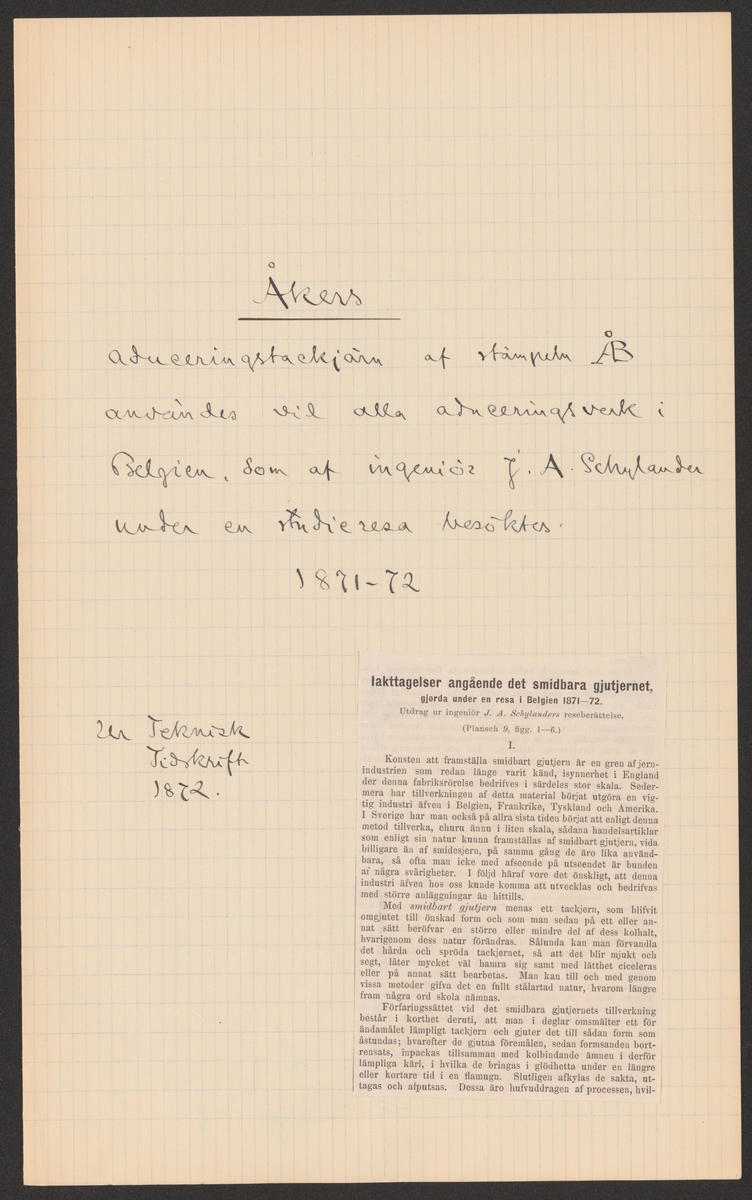 Åkers
aduceringstackjärn af stämpeln ÅB
användes vid alla aduceringsverk i
Belgien, som af ingeniör J. A. Schylander
under en studieresa besöktes.
1871-72
Ur Teknisk
Tidskrift
1872.
Iakttagelser angående det smidbara gjutjernet,
gjorda under en resa i Belgien 1871—72.
Utdrag ur ingeniör J. A. Schylanders reseberättelse.
(Plansch 9, figg. 1—6.)
I.
Konsten att framställa smidbart gjutjern är en gren af jern-
industrien som redan länge varit känd, isynnerhet i England
der denna fabriksrörelse bedrifves i särdeles stor skala. Seder-
mera har tillverkningen af detta material börjat utgöra en vig-
tig industri äfven i Belgien, Frankrike, Tyskland och Amerika.
I Sverige har man också på allra sista tiden börjat att enligt denna
metod tillverka, churu ännu i liten skala, sådana handelsartiklar
som enligt sin natur kunna framställas af smidbart gjutjern, vida
billigare än af smidesjern, på samma gång de äro lika använd-
bara, så ofta man icke med afseende på utseendet är bunden
af några svårigheter. I följd häraf vore det önskligt, att denna
industri äfven hos oss kunde komma att utvecklas och bedrifvas
med större anläggningar än hittills.
Med smidbart gjutjern menas ett tackjern, som blifvit
omgjutet till önskad form och som man sedan på ett eller an-
nat sätt beröfvar en större eller mindre del af dess kolhalt,
hvarigenom dess natur förändras. Sålunda kan man förvandla
det hårda och spröda tackjernet, så att det blir mjukt och
segt, låter mycket väl hamra sig samt med lätthet ciceleras
eller på annat sätt bearbetas. Man kan till och med genom
vissa metoder gifva det en fullt stålartad natur, hvarom längre
fram några ord skola nämnas.
Förfaringssättet vid det smidbara gjutjernets tillverkning
består i korthet deruti, att man i deglar omsmälter ett för
ändamålet lämpligt tackjern och gjuter det till sådan form som
åstundas; hvarefter de gjutna föremålen, sedan formsanden bort-
rensats, inpackas tillsamman med kolbindande ämnen i derför
lämpliga kärl, i hvilka de bringas i glödhetta under en längre
eller kortare tid i en flamugn. Slutligen afkylas de sakta, ut-
tagas och afputsas. Dessa äro hufvuddragen af processen, hvil-